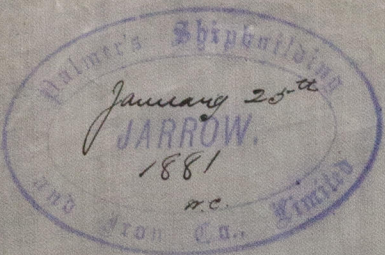 Palmer's Shipbuilding
January 25th
JARROW.
1881
W.C.
and Iron Co., Limited